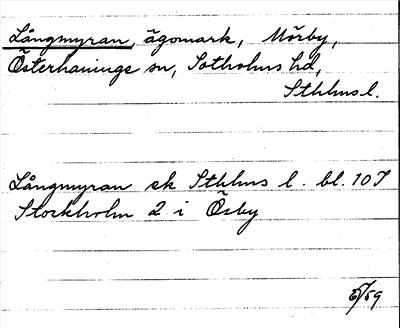 Långmyran, ägomark, Mörby,
Österhaninge sn, Sotholms hd,
Sthlms l.
Långmyran ek Sthlms l. bl. 107
Stockholm 2 i Ösby
5/59